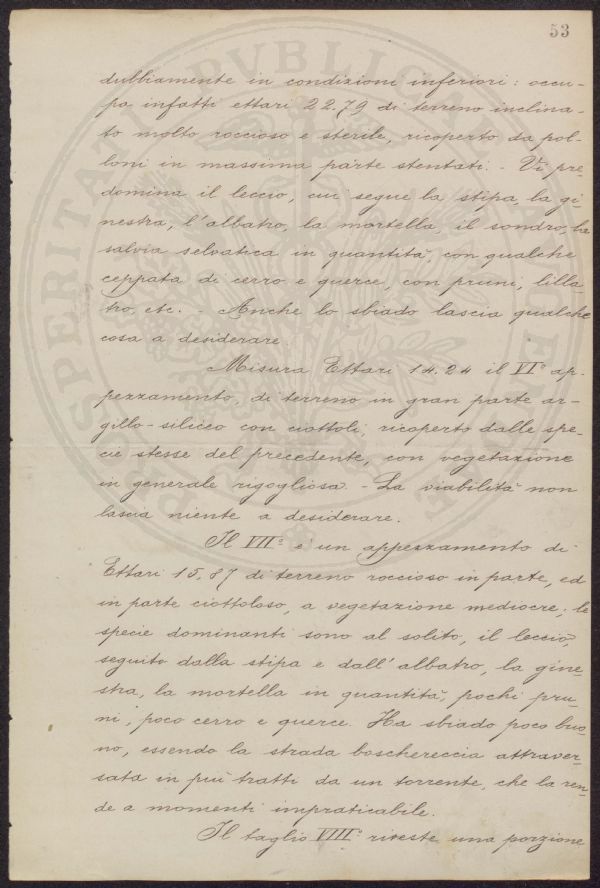 53
dubbiamente in condizioni inferiori: occu-
pa infatti ettari 22.79 di terreno inclina-
to molto roccioso e sterile, ricoperto da pol-
loni in massima parte stentati. - Vi pre-
domina il leccio, cui segue la stipa, la gi-
nestra, l'albatro, la mortella, il sondro, la
salvia selvatica in quantità, con qualche
ceppata di cerro e querce, con pruni, lilla-
tro, etc. - Anche lo sbiado lascia qualche
cosa a desiderare.
Misura Ettari 14.24 il VI° ap-
pezzamento, di terreno in gran parte ar-
gillo-siliceo con ciottoli, ricoperto dalle spe-
cie stesse del precedente, con vegetazione
in generale rigogliosa. - La viabilità non
lascia niente a desiderare.
Il VII° è un appezzamento di
Ettari 15,87 di terreno roccioso in parte, ed
in parte ciottoloso, a vegetazione mediocre; le
specie dominanti sono al solito, il leccio,
seguito dalla stipa e dall'albatro, la gine-
stra, la mortella in quantità, pochi pru-
ni, poco cerro e querce. Ha sbiado poco buo-
no, essendo la strada boschereccia attraver-
sata in più tratti da un torrente, che la ren-
de a momenti impraticabile.
Il taglio VIII° riveste una porzione